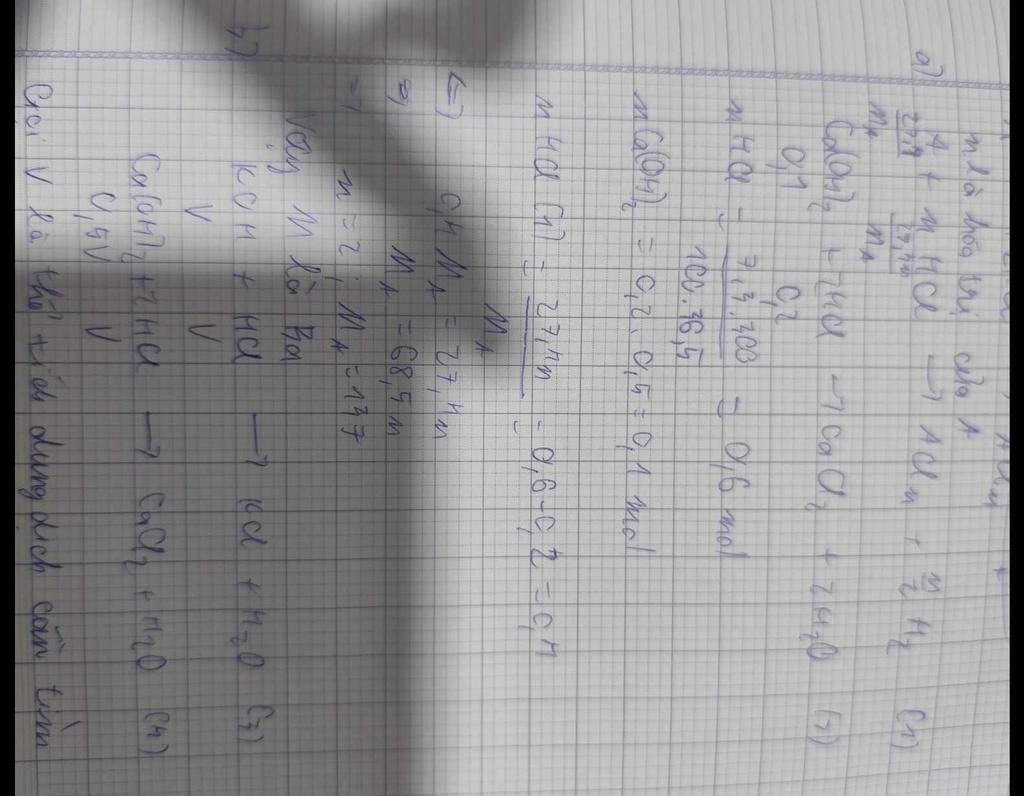 n là hóa trị của A
a)
A + nHCl → ACln + n/2 H2 (1)
27,4/MA 27,4n/MA
Ca(OH)2 + 2HCl → CaCl2 + 2H2O (2)
0,1 0,2
nHCl = 7,3.300/100.36,5 = 0,6 mol
nCa(OH)2 = 0,2.0,5 = 0,1 mol
nHCl (1) = 27,4n/MA = 0,6-0,2 = 0,4
<=> 0,4 MA = 27,4n
=> MA = 68,5 n
=> n = 2; MA = 137
Vậy M là Ba
b)
KOH + HCl → KCl + H2O (3)
V V
Ca(OH)2 + 2HCl → CaCl2 + H2O (4)
0,5V V
Gọi V là thể tích dung dịch cần tìm